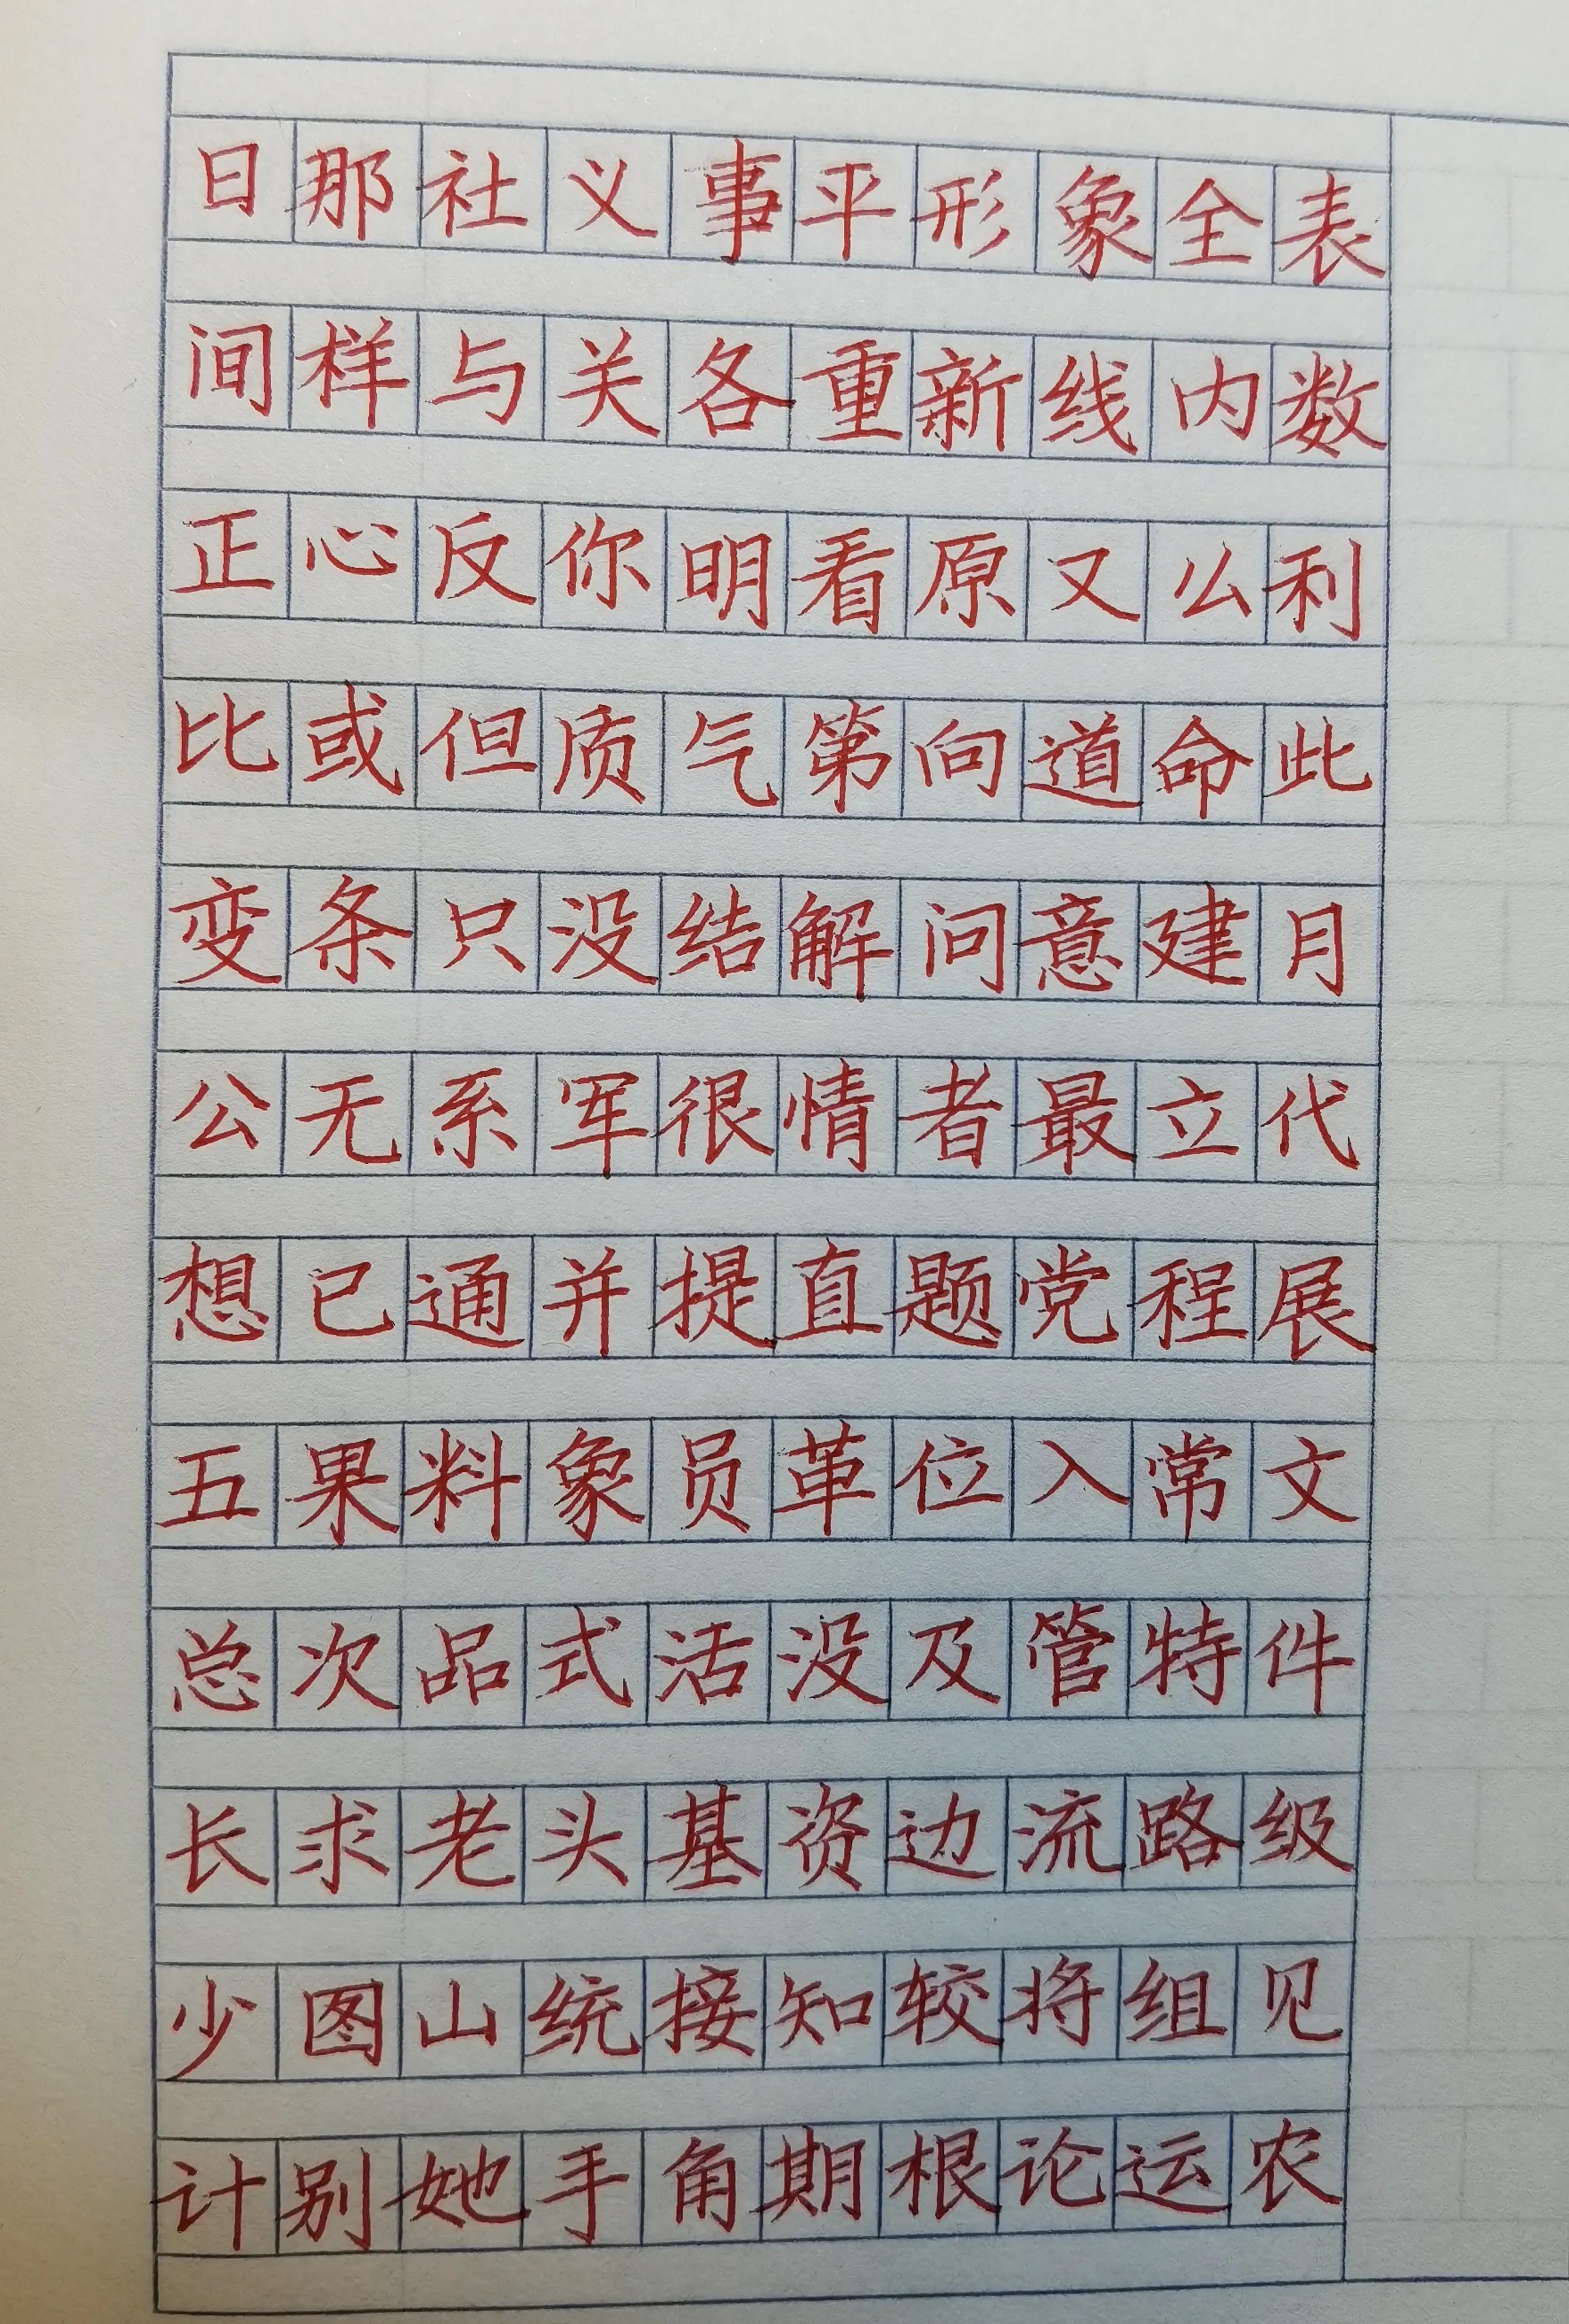 日那社义事平形象全表
间样与关各重新线内数
正心反你明看原又么利
比或但质气第向道命此
变条只没结解问意建月
公无系军很情者最立代
想已通并提直题党程展
五果料象员革位入常文
总次品式活没及管特件
长求老头基资边流路级
少图山统接知较将组见
计别她手角期根论运农